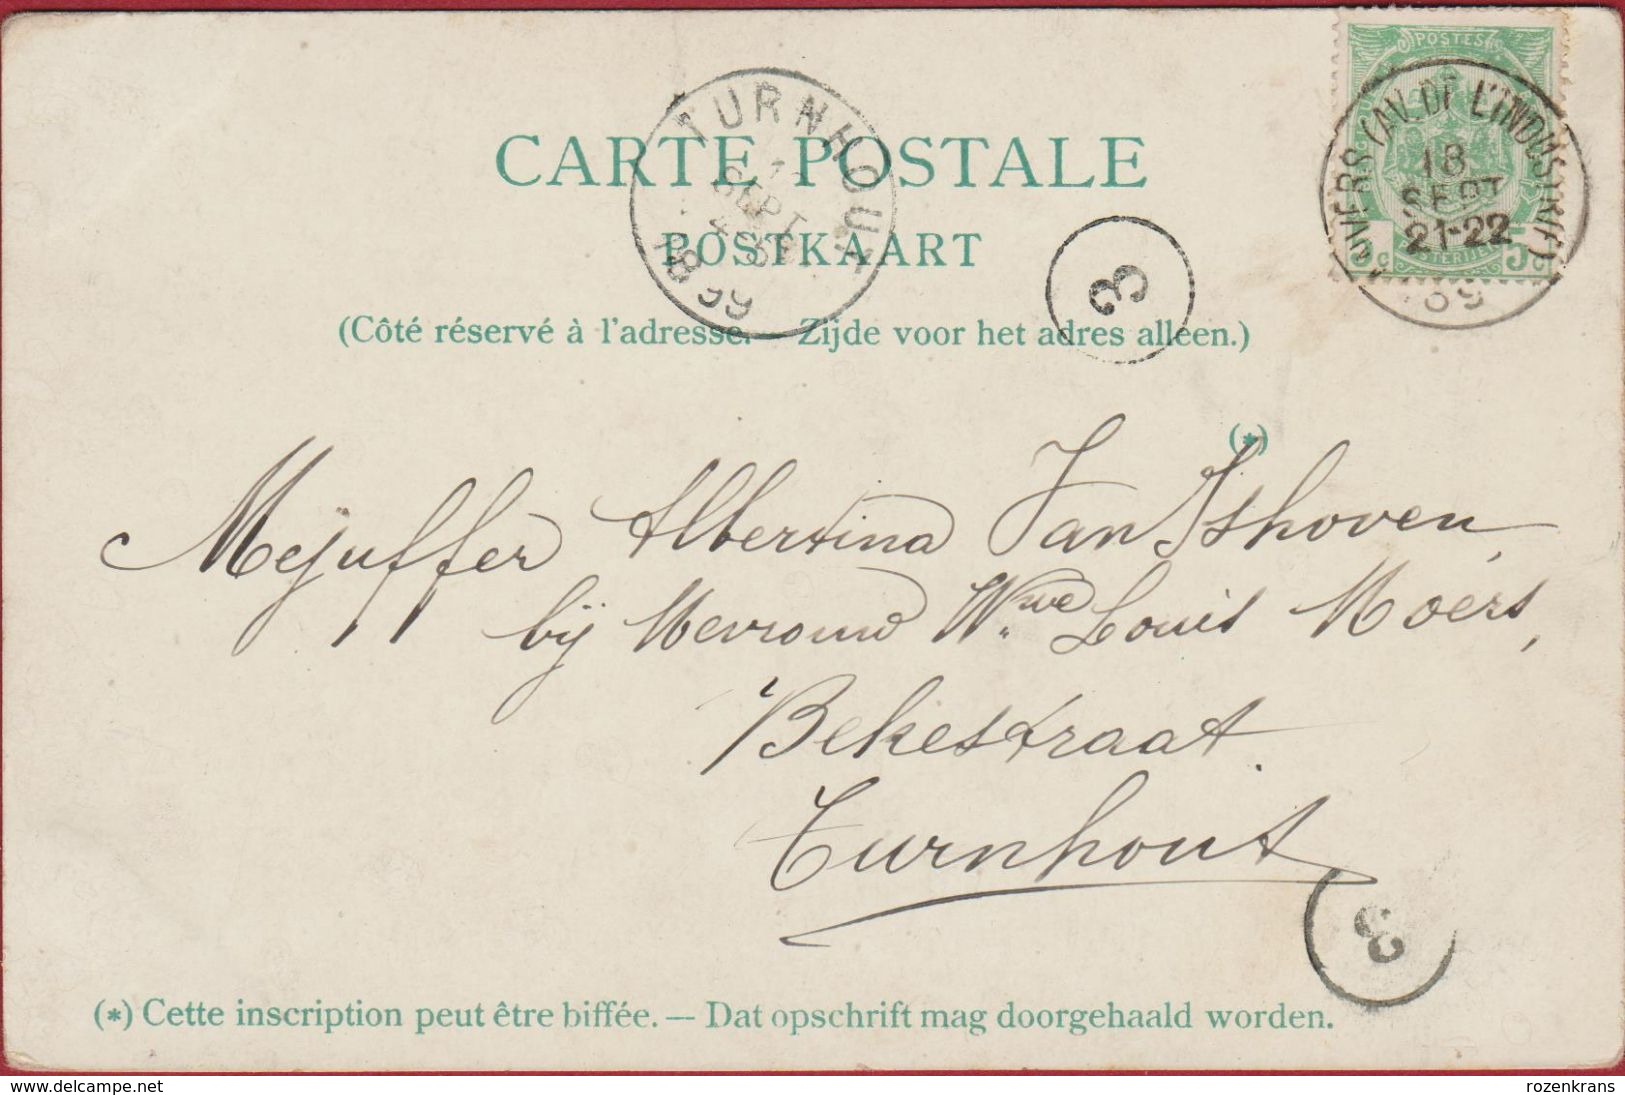 POSTES
ANVERS (AV. DE L'INDUSTRIE)
18
SEPT
21-22
5c
TURNHOUT
SEPT
1899
CARTE POSTALE
POSTKAART
3
(Côté réservé à l'adresse. — Zijde voor het adres alleen.)
(*)
Mejuffer Albertina Van Ishoven,
bij Mevrouw Wwe Louis Moërs,
Bekestraat.
Turnhout
3
(*) Cette inscription peut être biffée. — Dat opschrift mag doorgehaald worden.
www.delcampe.net
rozenkrans